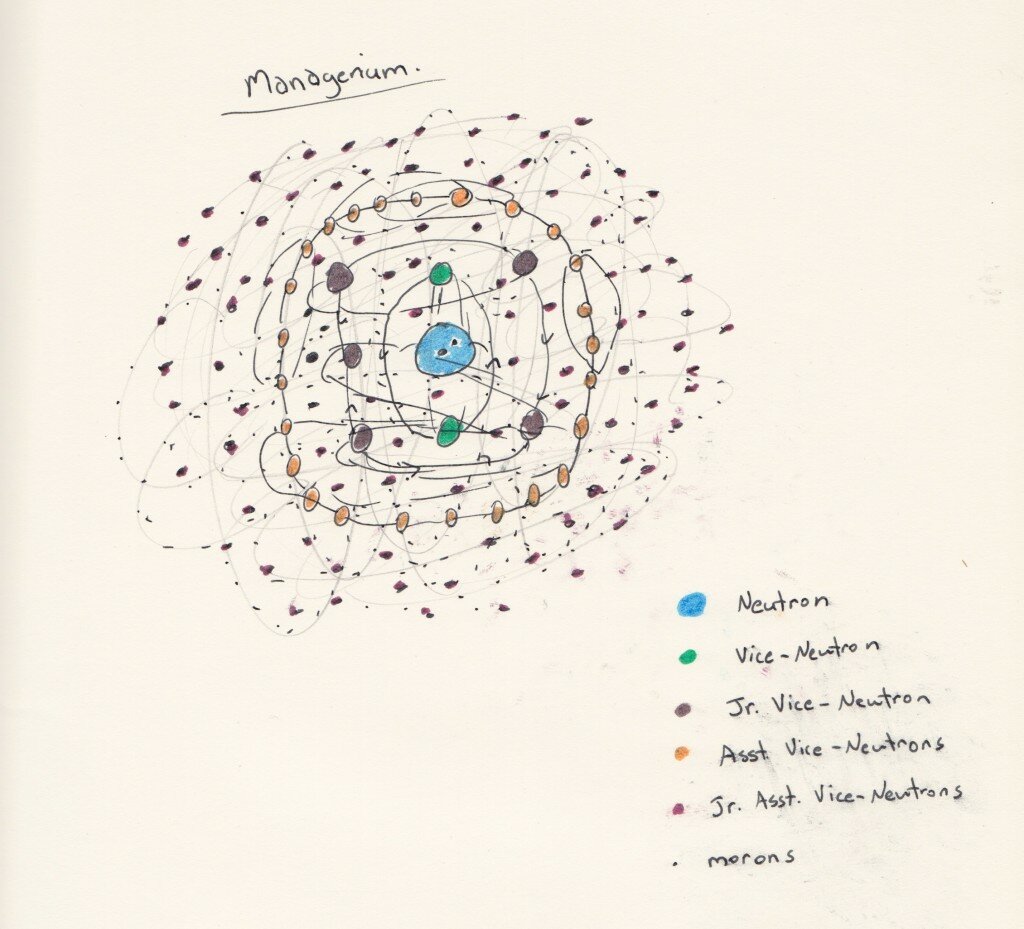 Managerium.
Neutron
Vice-Neutron
Jr. Vice-Neutron
Asst Vice-Neutrons
Jr. Asst. Vice-Neutrons
morons